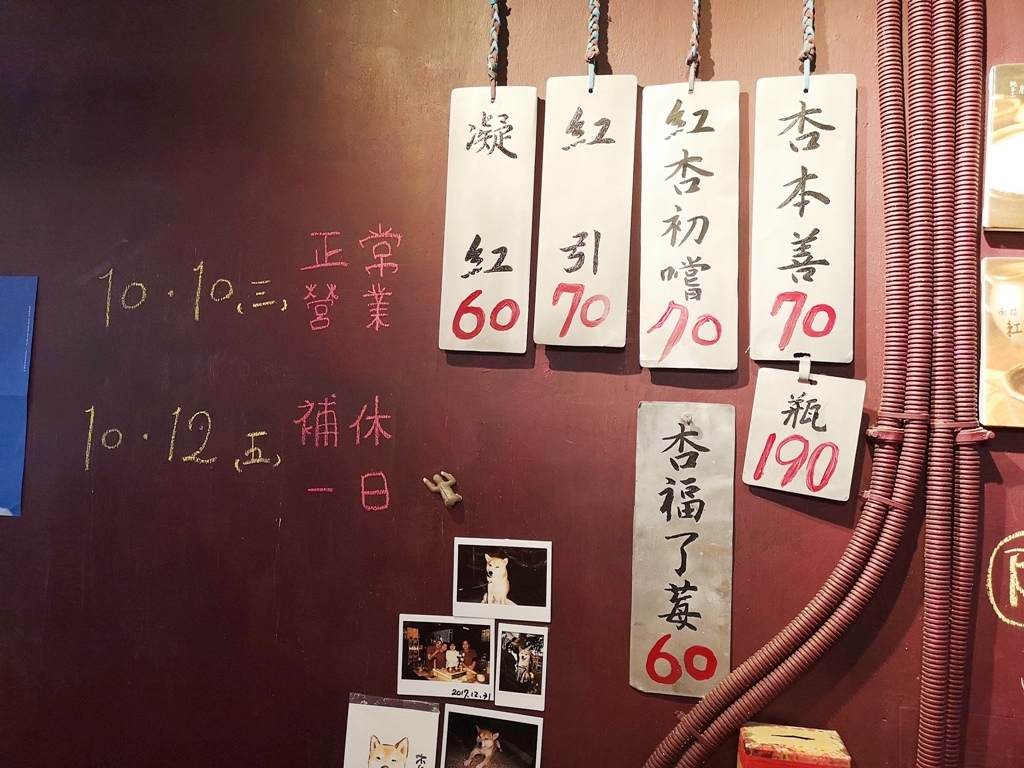 10.10(三)正常
營業
10.12(五)補休
一日
凝紅
60
紅引
70
紅杏初嚐
70
杏本善
70
瓶
190
杏福了莓
60
2017.12.31
紅